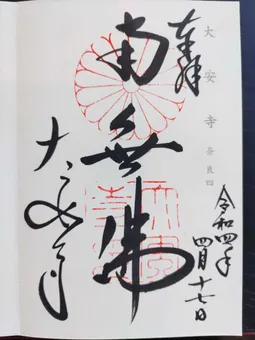 奉拝
大安寺 奈良四
令和四年
四月十七日
南無佛
大安寺